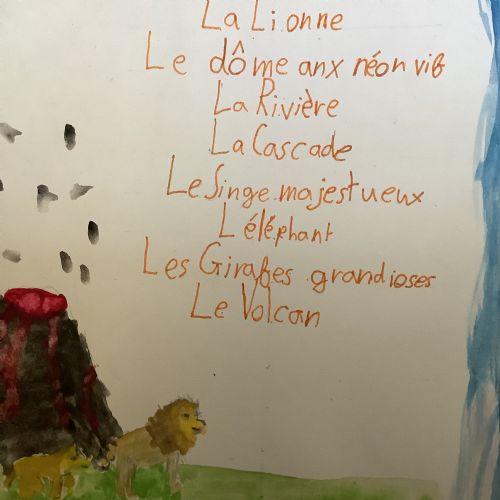 La Lionne
Le dôme anx néon vif
La Rivière
La Cascade
Le Singe majestueux
L éléphant
Les Girafes grandioses
Le Volcan